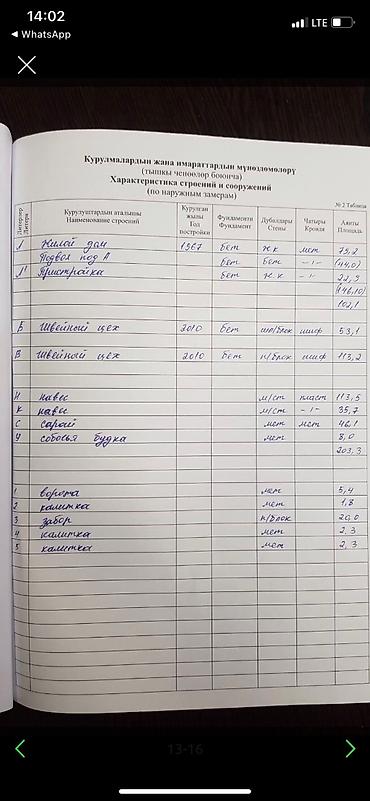 14:02
LTE
WhatsApp
Курулмалардын жана имараттардын мүнөздөмөлөрү
(тышкы ченөөлөр боюнча)
Характеристика строений и сооружений
(по наружным замерам)
№ 2 Таблица
Литерлер Литера Курулуштардын аталышы Наименование строений Курулган жылы Год постройки Фундаменти Фундамент Дубалдары Стены Чатыры Кровля Аянты Площадь
А Жилой дом 1967 бет ж.к мет 79,2
Подвал под А бет бет -"- (44,0)
А' Пристройка бет ж.к -"- 22,9
(146,10)
102,1
Б Швейный цех 2010 бет шл/блок шиф 53,1
В Швейный цех 2010 бет п/блок шиф 113,2
Н навес м/ст пласт 113,5
К навес м/ст -"- 35,7
С сарай мет мет 46,1
У собачья будка мет 8,0
203,3
1 ворота мет 5,4
2 калитка мет 1,8
3 забор п/блок 20,0
4 калитка мет 2,3
5 калитка мет 2,3
13-16